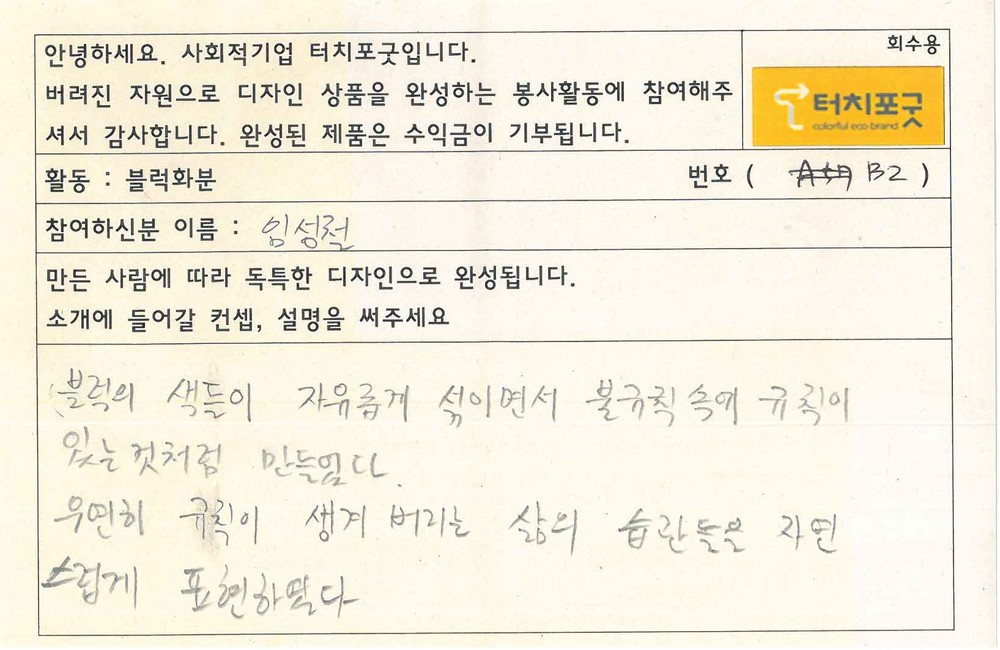 안녕하세요. 사회적기업 터치포굿입니다.
버려진 자원으로 디자인 상품을 완성하는 봉사활동에 참여해주
셔서 감사합니다. 완성된 제품은 수익금이 기부됩니다.
회수용
터치포굿
colorful eco brand
활동 : 블럭화분
번호 ( B2 )
참여하신분 이름 : 임성철
만든 사람에 따라 독특한 디자인으로 완성됩니다.
소개에 들어갈 컨셉, 설명을 써주세요
블럭의 색들이 자유롭게 섞이면서 불규칙속에 규칙이
있는것처럼 만들었다.
우연히 규칙이 생겨 버리는 삶의 습관들을 자연
스럽게 표현하였다